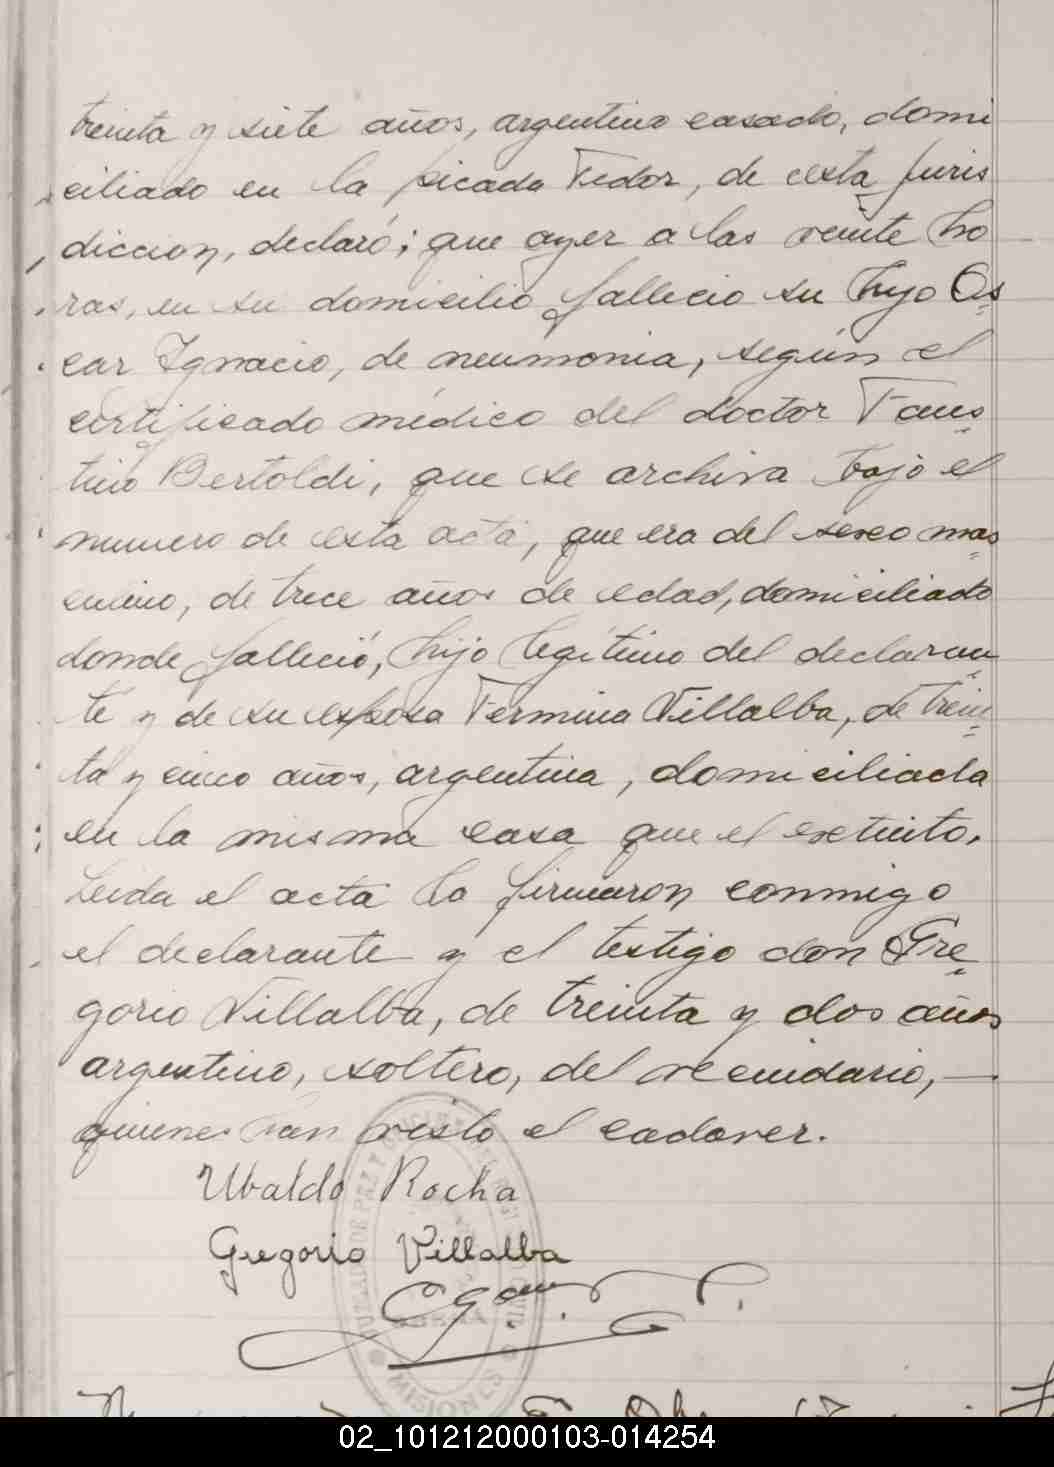 treinta y siete años, argentino casado, domi
ciliado en la picada Fedor, de esta juris
diccion, declaró; que ayer a las veinte ho
ras, en su domicilio fallecio su hijo Os
car Ignacio, de neumonia, según el
certificado médico del doctor Faus
tino Bertoldi, que se archiva bajo el
numero de esta acta, que era del sexo mas
culino, de trece años de edad, domiciliado
donde falleció, hijo legítimo del declaran
te y de su esposa Fermina Villalba, de trein
ta y cinco años, argentina, domiciliada
en la misma casa que el extinto.
Leida el acta la firmaron conmigo
el declarante y el testigo don Gre
gorio Villalba, de treinta y dos años
argentino, soltero, del vecindario, —
quienes han visto el cadaver.
Ubaldo Rocha
Gregorio Villalba
MISIONES
02_101212000103-014254